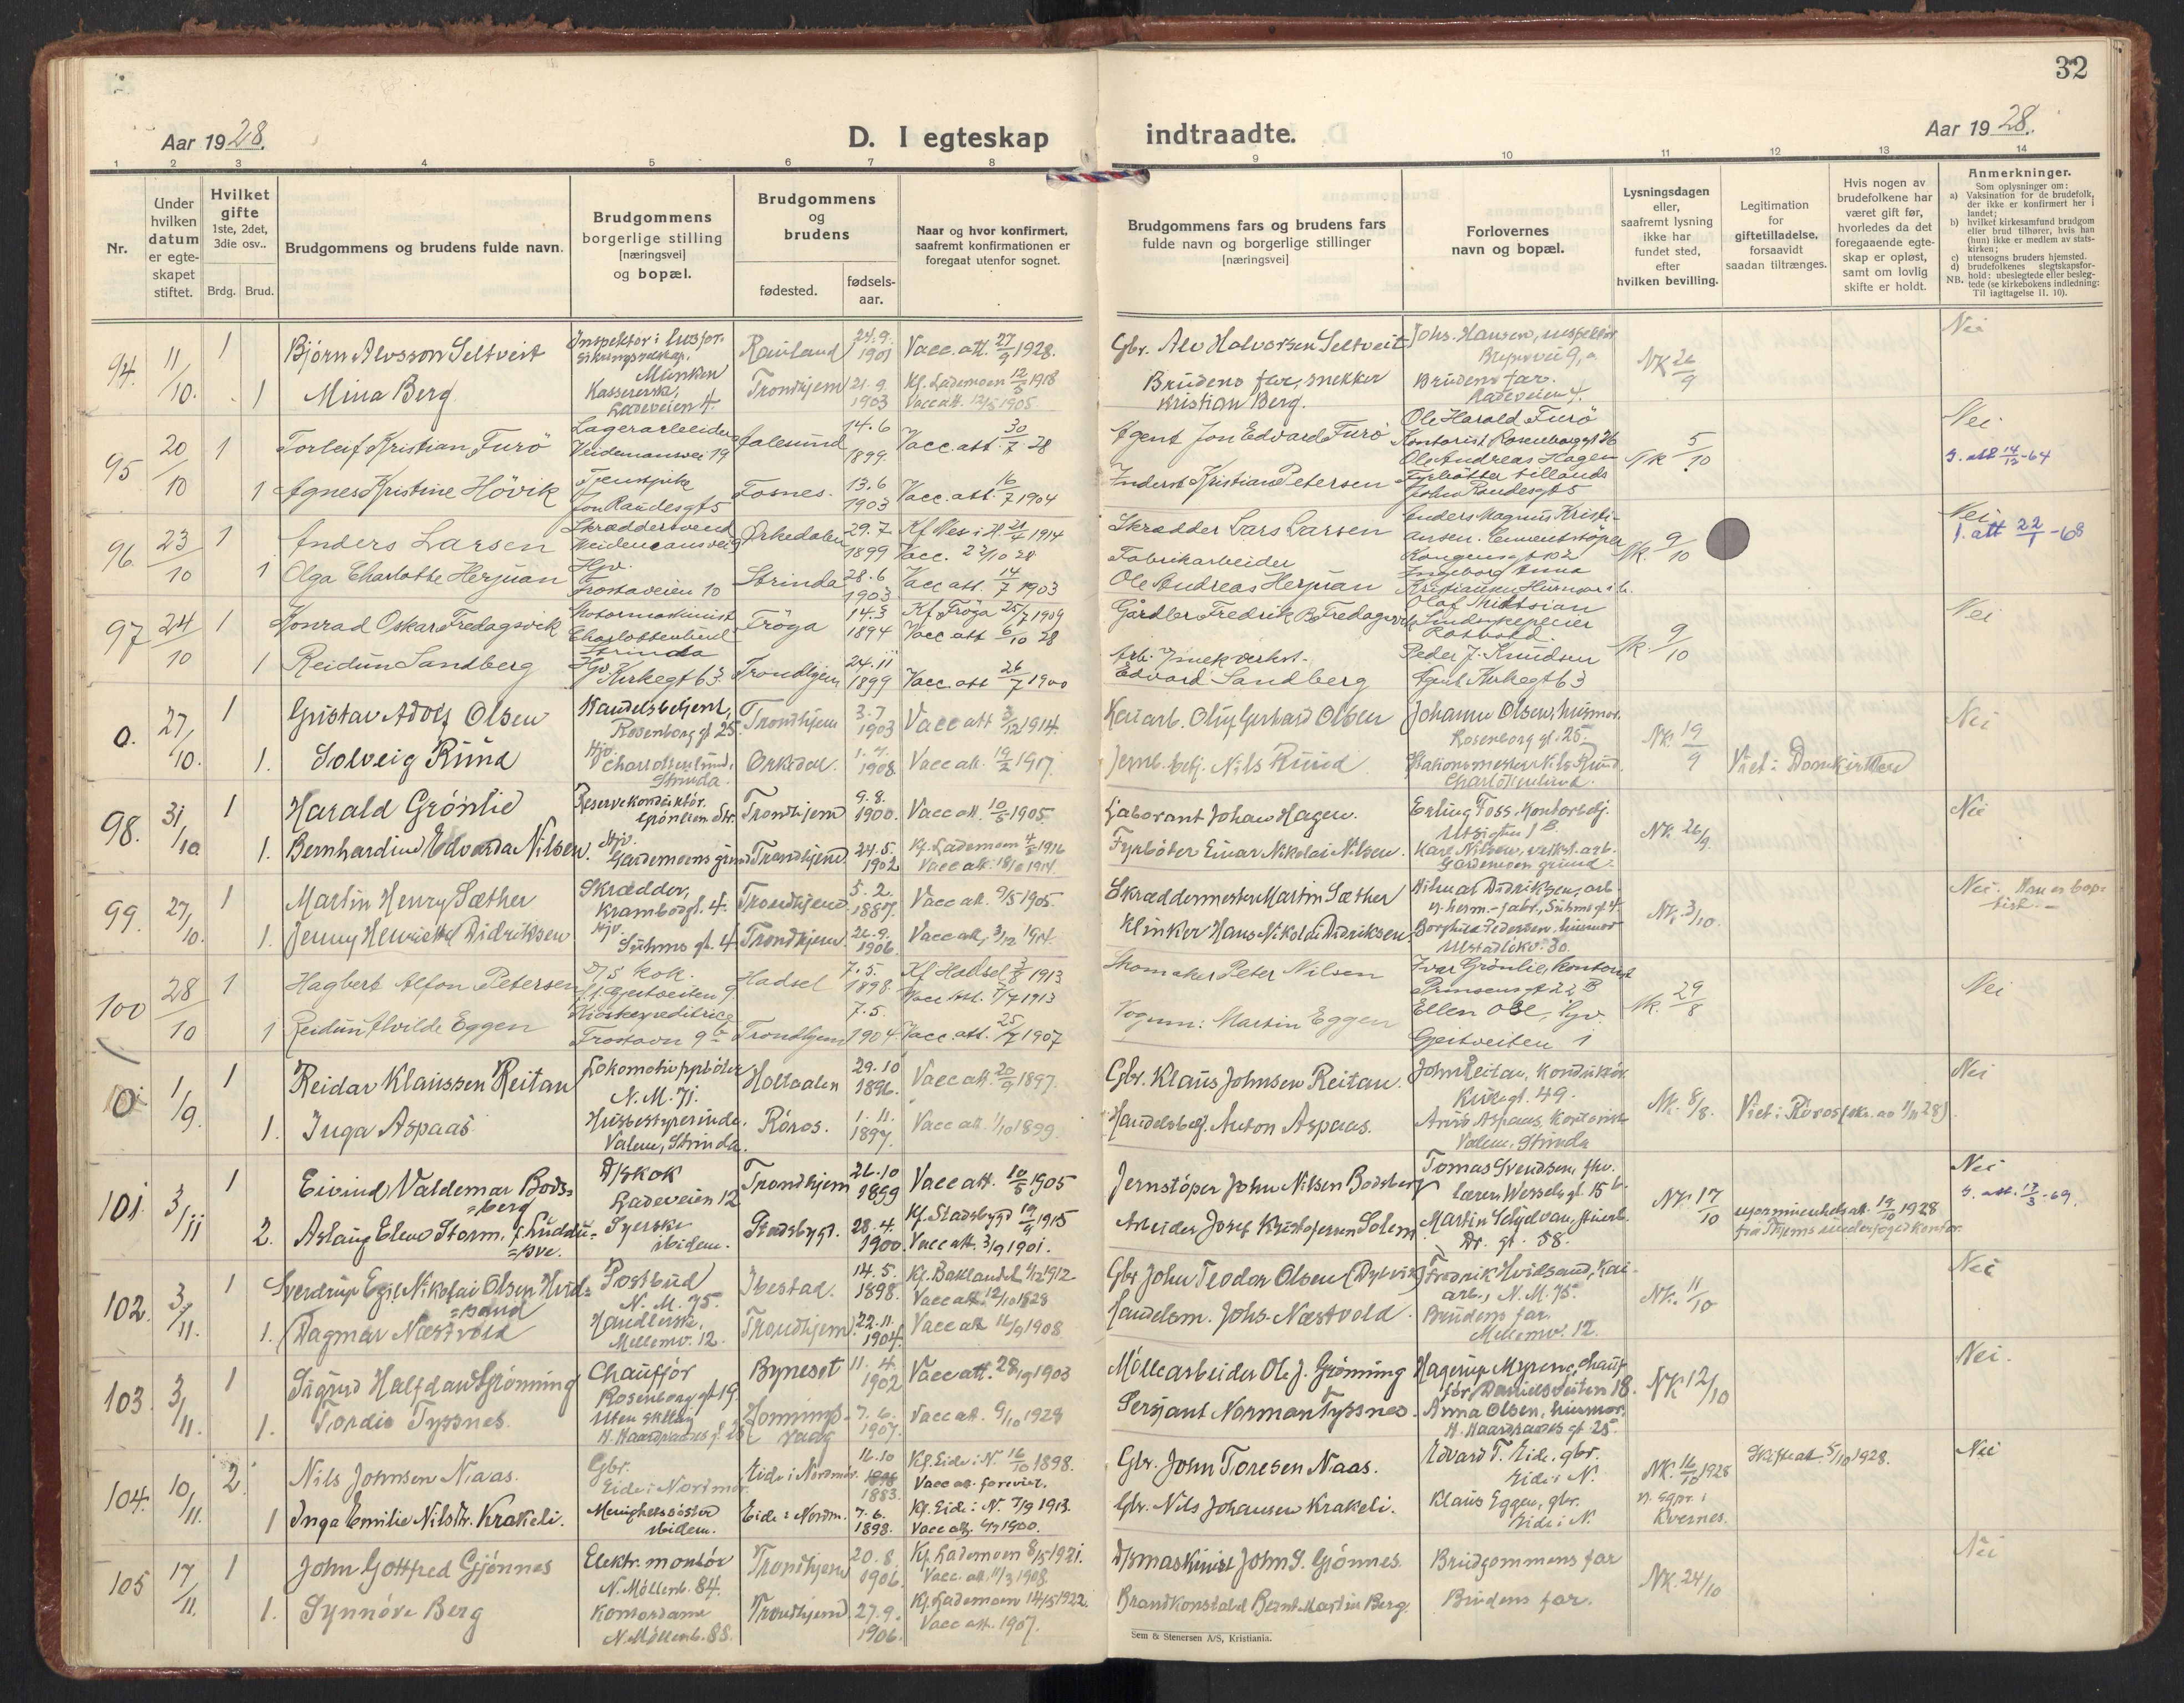 32
Aar 1928.
D. I egteskap
indtraadte.
Aar 1928.
1 2 3 4 5 6 7 8 9 10 11 12 13 14
Nr.
Under hvilken datum er egteskapet stiftet.
Hvilket gifte
1ste, 2det, 3die osv..
Brdg. Brud.
Brudgommens og brudens fulde navn.
Brudgommens
borgerlige stilling
[næringsvei]
og bopæl.
Brudgommens
og
brudens
fødested.
fødselsaar.
Naar og hvor konfirmert,
saafremt konfirmationen er
foregaat utenfor sognet.
Brudgommens fars og brudens fars
fulde navn og borgerlige stillinger
[næringsvei]
Forlovernes
navn og bopæl.
Lysningsdagen
eller,
saafremt lysning
ikke har
fundet sted,
efter
hvilken bevilling.
Legitimation
for
giftetilladelse,
forsaavidt
saadan tiltrænges.
Hvis nogen av
brudefolkene har
været gift før,
hvorledes da det
foregaaende egte-
skap er opløst,
samt om lovlig
skifte er holdt.
Anmerkninger.
Som oplysninger om:
a) Vaksination for de brudefolk,
der ikke er konfirmert her i
landet;
b) hvilket kirkesamfund brudgom
eller brud tilhører, hvis han
(hun) ikke er medlem av stats-
kirken;
c) utensogns bruders hjemsted.
d) brudefolkenes slegtskapsfor-
hold: ubeslegtede eller besleg-
NB. tede (se kirkebokens indledning:
Til iagttagelse II. 10).
94. 11/10. 1 Bjørn Alvsson Seltveit
Rauland 24.9. 1901 Vacc. att. 27/9 1928.
Gbr. Alv Halvorsen Seltveit Johs. Hansen, inspektør
NK 26/9 Nei
1 Mina Berg Ladeveien 4. Trondhjem 21.9. 1903 Kf. Lademoen 12/5 1918
Vacc att. 12/5 1905
Brudens far, snekker Kristian Berg. Brudens far. Ladeveien 4.
95 20/10 1 Torleif Kristian Furö Lagerarbeider Weidemannsvei 19 Aalesund 14.6 1899. Vacc. att 30/7 28
Agent Jon Edvard Furö Ole Harald Furö Kontorist Rosenborggt 26
NK 5/10 Nei
1 Agnes Kristine Hövik Tjenstpike Jon Raudesgt 5 Fosnes. 13.6 1903 Vacc. att. 16/7 1904
Inderst Kristian Petersen Ole Andreas Hagen
J. att 14/12-64
96 23/10 1 Anders Larsen Skræddersvend Orkedalen 29.7 1899
Vacc. 22/10 28
Skrædder Lars Larsen Anders Magnus Kristiansen. Cementstöper Kongensgt 102
NK. 9/10 Nei
1. att 22/1-68
1 Olga Charlotte Herjuan Hjv. Frostaveien 10 Strinda 28.6 1903 Vacc att. 14/7 1903
Fabrikarbeider Ole Andreas Herjuan Ingeborg Anna
97 24/10 1 Konrad Oskar Fredagsvik Motormaskinist Charlottenlund Strinda Fröya 14.3 1894 Kf Fröya 25/7 1909
Vacc att 6/10 28
Gårdbr Fredrik B. Fredagsvik
NK. 9/10 Nei
1 Reidun Sandberg Hjv Kirkegt 63. Trondhjem 24.11 1899 Vacc. att 26/7 1900
Arb. v/ mek verkst. Edvard Sandberg Peder J. Knudsen Agent Kirkegt 63
0. 27/10. 1 Gustav Adolf Olsen Handelsbetjent, Rosenborg gt 25. Trondhjem 3.7 1903 Vacc att 3/12 1914.
Johanne Olsen, husmor. Rosenborg gt. 25.
NK. 19/9 Viet i Domkirken Nei
1. Solveig Ruud Hjv. Charlottenlund, Strinda. Orkedal. 1908. Vacc att. 19/2 1917.
Jernb. betj. Nils Ruud
Charlottenlund.
98. 31/10 1 Harald Grönlie Reservekonduktör. Trondhjem 9.8. 1900. Vacc att. 10/5 1905.
Laborant Johan Hagen. Erling Foss, kontorbtj. Utsigten 1 B.
NK. 26/9. Nei
1. Bernhardine Edvarda Nilsen. Hjv. Gardemoens grund Trondhjem 24.5. 1902 Kf. Lademoen 4/6 1916
Vacc att. 18/6 1914.
Fyrböter Einar Nikolai Nilsen. Karl Nilsen, verkst. arb. Gardemoen grund.
99. 27/10. 1 Martin Henry Sæther Skrædder, Krambodgt. 4. Trondhjem 5.2. 1887. Vacc att. 9/5 1905.
Skræddermester Martin Sæther Hilmar Didriksen, arb.
NK. 3/10. Nei. Han er baptist.
1. Jenny Henriette Didriksen Hjv. Suhms gt. 4 Trondhjem 26.9. 1906. Vacc att. 3/12 1914.
Klinker Hans Nikolai Didriksen. Borghild Pedersen, husmor
100 28/10 1 Hagbert Alfon Petersen D/S kok. Hadsel 7.5. 1898. Kf. Hadsel 3/8 1913
Skomaker Peter Nilsen Ivar Grönlie, kontorist Prinsensgt 22 B
NK. 29/8 Nei
1 Reidun Alvilde Eggen Frostavn 9b Trondhjem 7.5. 1904 Vacc. att. 25/7 1907
Vognm: Martin Eggen Ellen Öse, hjv. Gjeitveiten 1
0 1/9. 1 Reidar Klaussen Reitan Lokomotivfyrböter N. M. 71. Holtaalen 29.10 1896. Vacc att. 20/9 1897.
Gbr. Klaus Johnsen Reitan. John Reitan, konduktör
NK. 8/8. Nei
1. Inga Aspaas Husbestyrerinde. Valene, Strinda. Röros. 1.11. 1897. Vacc att. 1/10 1899.
Handelsbetj. Anton Aspaas. Valene, Strinda
101. 3/11 1 Eivind Valdemar Bodsberg D/S kok Ladeveien 12 Trondhjem 26.10 1899 Vacc att. 10/5 1905
Jernstöper John Nilsen Bodsberg Tomas Svendsen, Wesselsgt. 15 b.
NK. 17/10 Nei
2. Aslaug Eleo Storm, f. Syerske ibidem. Stadsbygd. 28.4. 1900. Kf. Stadsbygd 19/9 1915
Vacc att. 3/9 1901.
Arbeider Josef Kristofersen Solem
102. 3/11. 1 Sverdrup Egil Nikolai Olsen Hvidsand Postbud N. M. 75. Ibestad. 14.5. 1898. Kf. Baklandet 1/12 1912
Vacc att. 12/10 1928
Gbr John Teodor Olsen Fredrik Hvidsand, kaiarb., N. M. 75.
NK. 11/10 Nei
1. Dagmar Næstvold Handlerske, Mellemv. 12. Trondhjem 22.11. 1904. Vacc att 16/9 1908
Handelsm. Johs. Næstvold. Brudens far. Mellemv. 12.
103. 3/11. 1 Sigurd Halfdan Grönning Chauffør Rosenborg gt 19. Byneset 11.4. 1902 Vacc att. 28/9 1903
Möllearbeider Ole J. Grönning Hagerup Myrene, chauffør, Danielsveiten 18.
NK 12/10 Nei.
1. Tordis Tyssnes. Uten stilling H. Haardraades gt. 25 Honningsvaag 7.6. 1907. Vacc att. 9/10 1928
Sersjant Norman Tyssnes. Anna Olsen, husmor, H. Haardraades gt 25.
104. 10/11. 2. Nils Johnsen Naas. Gbr. Eide i Nordmør. Eide i Nordmør. 16.10 1883. Kf. Eide i N. 16/10 1898.
Vacc att. forevist.
Gbr. John Toresen Naas. Edvard T. Eide, gbr. Eide i N.
NK. 16/10 1928 Skifteatt 5/10 1928. Nei
1 Inga Emilie Nilsdtr. Krakeli. Menighetssöster ibidem. Eide i Nordm. 7.6. 1898. Kf. Eide i N. 7/9 1913.
Gbr. Nils Johansen Krakeli. Klaus Eggen, gbr. Eide i N. Kvernes.
105 17/11. 1 John Gottfred Gjönnes Elektr. montör N. Möllenb. 84. Trondhjem 20.8. 1906. Kf. Lademoen 8/5 1921.
Vacc. att. 11/3 1908.
D/S maskinist John S. Gjönnes. Brudgommens far
NK. 24/10 Nei
1. Synnöve Berg Kontordame N. Möllenb. 88. Trondhjem 27.9. 1906. Kf. Lademoen 14/5 1922.
Vacc att. 1907.
Brandkonstabel Bernt Martin Berg. Brudens far.
Sem & Stenersen A/S, Kristiania.